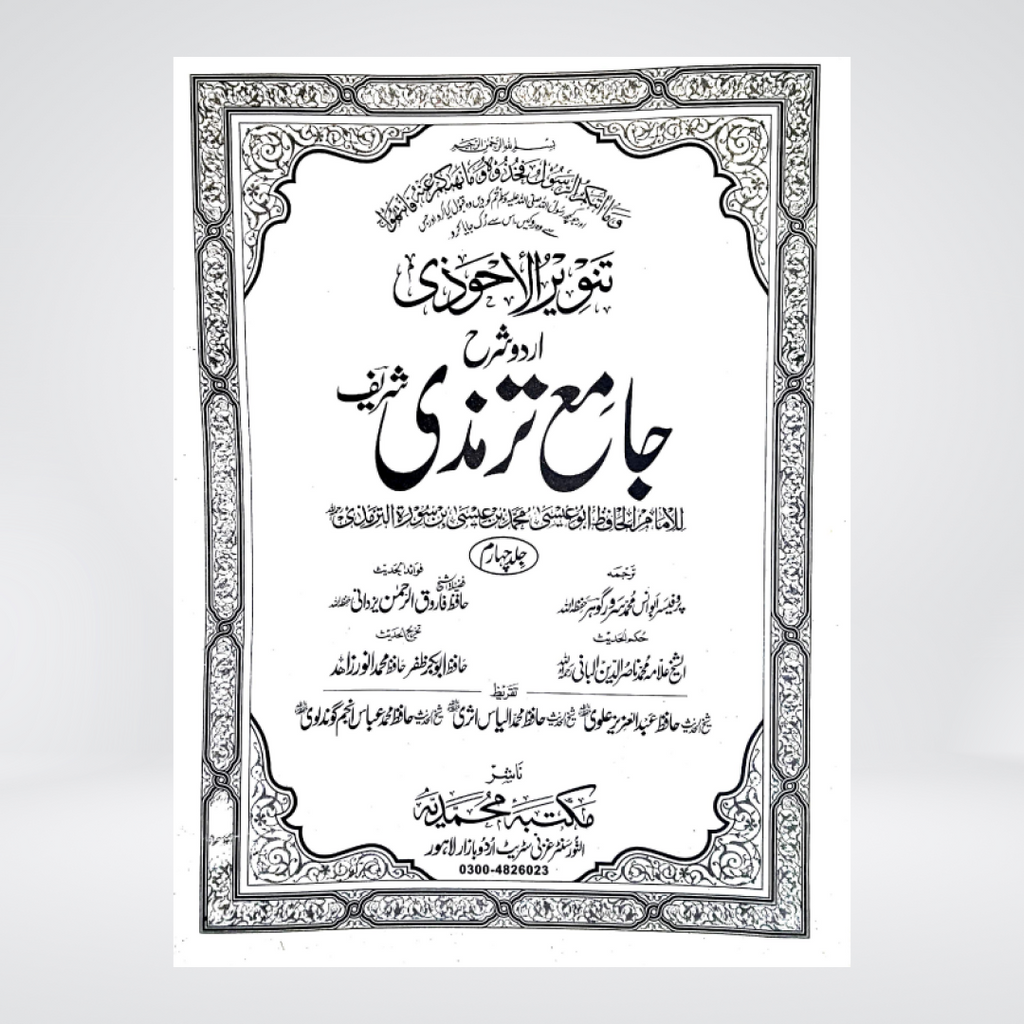 بسم اللہ الرحمن الرحیم
وَمَا آتٰىكُمُ الرَّسُوْلُ فَخُذُوْهُ وَمَا نَهٰىكُمْ عَنْهُ فَانْتَهُوْا
اور جو کچھ رسول اللہ صلی اللہ علیہ وسلم تم کو دیں وہ قبول کیا کرو اور جس
سے وہ روکیں، اس سے رُک جایا کرو
تنویر الأحوذی
اردو شرح
جامع ترمذی شریف
للامام الحافظ ابو عیسی محمد بن عیسی بن سورة الترمذی رحمہ اللہ
جلد چہارم
ترجمہ
پروفیسر ابوانس محمد سرور گوہر حفظہ اللہ
فوائد الحدیث
فضیلۃ الشیخ
حافظ فاروق الرحمٰن یزدانی حفظہ اللہ
حکم الحدیث
الشیخ علامہ محمد ناصر الدین البانی رحمہ اللہ
تخریج الحدیث
حافظ ابوبکر ظفر حافظ محمد انور زاھد
تقریظ
شیخ الحدیث حافظ عبدالعزیز علوی شیخ الحدیث حافظ محمد الیاس اثری شیخ الحدیث حافظ محمد عباس انجم گوندلوی
ناشر
مکتبہ محمدیہ
النور سنٹر غزنی سٹریٹ اردو بازار لاہور
0300-4826023